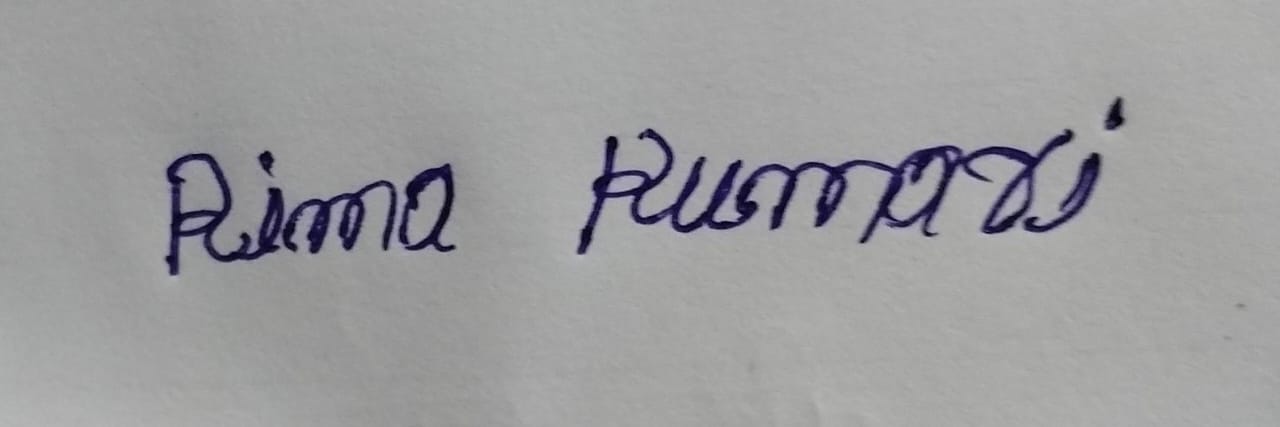 Rima Kumari